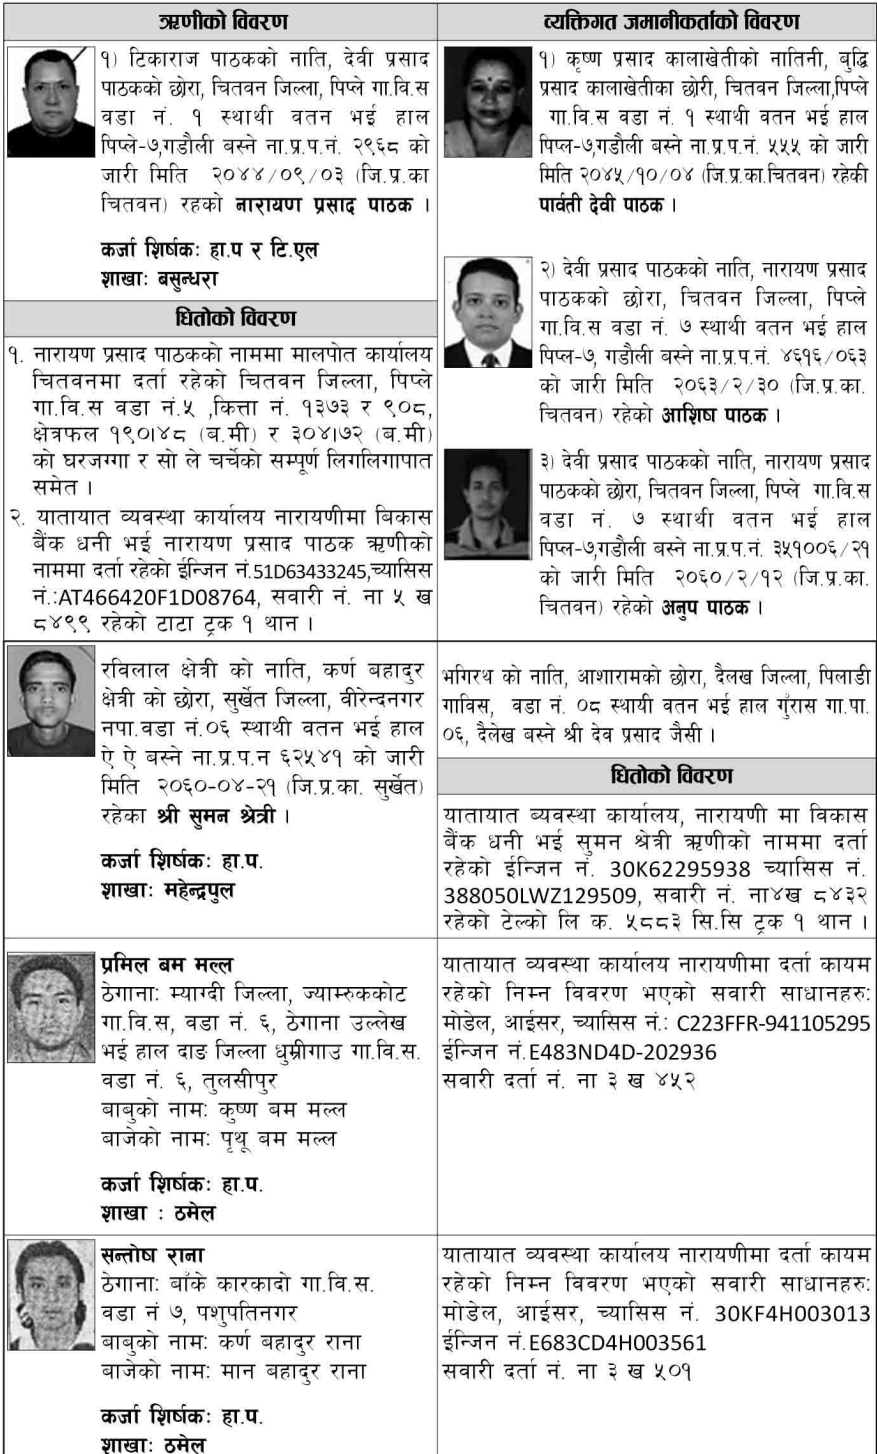 ऋणीको विवरण
१) टिकाराज पाठकको नाति, देवी प्रसाद
पाठकको छोरा, चितवन जिल्ला, पिप्ले गा.वि.स
वडा नं. १ स्थाथी वतन भई हाल
पिप्ले-७,गडौली बस्ने ना.प्र.प.नं. २९६८ को
जारी मिति २०४४/०९/०३ (जि.प्र.का
चितवन) रहको नारायण प्रसाद पाठक ।
कर्जा शिर्षकः हा.प र टि.एल
शाखाः बसुन्धरा
धितोको विवरण
१. नारायण प्रसाद पाठकको नाममा मालपोत कार्यालय
चितवनमा दर्ता रहेको चितवन जिल्ला, पिप्ले
गा.वि.स वडा नं.५ ,कित्ता नं. १३७३ र ९०८,
क्षेत्रफल १९०।४८ (ब.मी) र ३०४।७२ (ब.मी)
को घरजग्गा र सो ले चर्चेको सम्पूर्ण लिगलिगापात
समेत ।
२. यातायात व्यवस्था कार्यालय नारायणीमा बिकास
बैंक धनी भई नारायण प्रसाद पाठक ऋणीको
नाममा दर्ता रहेको ईन्जिन नं.51D63433245,च्यासिस
नं.:AT466420F1D08764, सवारी नं. ना ५ ख
८४९९ रहेको टाटा ट्रक १ थान ।
व्यक्तिगत जमानीकर्ताको विवरण
१) कृष्ण प्रसाद कालाखेतीको नातिनी, बुद्धि
प्रसाद कालाखेतीका छोरी, चितवन जिल्ला,पिप्ले
गा.वि.स वडा नं. १ स्थाथी वतन भई हाल
पिप्ल-७,गडौली बस्ने ना.प्र.प.नं. ५५५ को जारी
मिति २०४५/१०/०४ (जि.प्र.का.चितवन) रहेकी
पार्वती देवी पाठक ।
२) देवी प्रसाद पाठकको नाति, नारायण प्रसाद
पाठकको छोरा, चितवन जिल्ला, पिप्ले
गा.वि.स वडा नं. ७ स्थाथी वतन भई हाल
पिप्ल-७, गडौली बस्ने ना.प्र.प.नं. ४६१६/०६३
को जारी मिति २०६३/२/३० (जि.प्र.का.
चितवन) रहेको आशिष पाठक ।
३) देवी प्रसाद पाठकको नाति, नारायण प्रसाद
पाठकको छोरा, चितवन जिल्ला, पिप्ले गा.वि.स
वडा नं. ७ स्थाथी वतन भई हाल
पिप्ल-७,गडौली बस्ने ना.प्र.प.नं. ३५१००६/२१
को जारी मिति २०६०/२/१२ (जि.प्र.का.
चितवन) रहेको अनुप पाठक ।
रविलाल क्षेत्री को नाति, कर्ण बहादुर
क्षेत्री को छोरा, सुर्खेत जिल्ला, वीरेन्दनगर
नपा.वडा नं.०६ स्थाथी वतन भई हाल
ऐ ऐ बस्ने ना.प्र.प.न ६२५४१ को जारी
मिति २०६०-०४-२१ (जि.प्र.का. सुर्खेत)
रहेका श्री सुमन श्रेत्री ।
कर्जा शिर्षकः हा.प.
शाखाः महेन्द्रपुल
भगिरथ को नाति, आशारामको छोरा, दैलख जिल्ला, पिलाडी
गाविस, वडा नं. ०८ स्थायी वतन भई हाल गुँरास गा.पा.
०६, दैलेख बस्ने श्री देव प्रसाद जैसी ।
धितोको विवरण
यातायात ब्यवस्था कार्यालय, नारायणी मा विकास
बैंक धनी भई सुमन श्रेत्री ऋणीको नाममा दर्ता
रहेको ईन्जिन नं. 30K62295938 च्यासिस नं.
388050LWZ129509, सवारी नं. ना४ख ८४३२
रहेको टेल्को लि क. ५८८३ सि.सि ट्रक १ थान ।
प्रमिल बम मल्ल
ठेगानाः म्याग्दी जिल्ला, ज्यामरुककोट
गा.वि.स, वडा नं. ६, ठेगाना उल्लेख
भई हाल दाङ जिल्ला धुम्रीगाउ गा.वि.स.
वडा नं. ६, तुलसीपुर
बाबुको नामः कृष्ण बम मल्ल
बाजेको नामः पृथू बम मल्ल
कर्जा शिर्षकः हा.प.
शाखा : ठमेल
यातायात व्यवस्था कार्यालय नारायणीमा दर्ता कायम
रहेको निम्न विवरण भएको सवारी साधानहरुः
मोडेल, आईसर, च्यासिस नं.: C223FFR-941105295
ईन्जिन नं.E483ND4D-202936
सवारी दर्ता नं. ना ३ ख ४५२
सन्तोष राना
ठेगानाः बाँके कारकादो गा.वि.स.
वडा नं ७, पशुपतिनगर
बाबुको नामः कर्ण बहादुर राना
बाजेको नामः मान बहादुर राना
कर्जा शिर्षकः हा.प.
शाखाः ठमेल
यातायात व्यवस्था कार्यालय नारायणीमा दर्ता कायम
रहेको निम्न विवरण भएको सवारी साधानहरुः
मोडेल, आईसर, च्यासिस नं. 30KF4H003013
ईन्जिन नं.E683CD4H003561
सवारी दर्ता नं. ना ३ ख ५०१